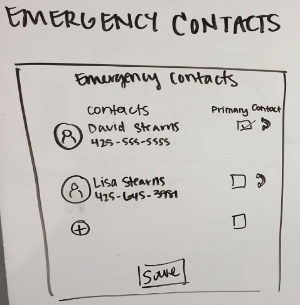 EMERGENCY CONTACTS
Emergency Contacts
Contacts Primary Contact
David Stearns
425-555-5555
Lisa Stearns
425-645-3981
Save